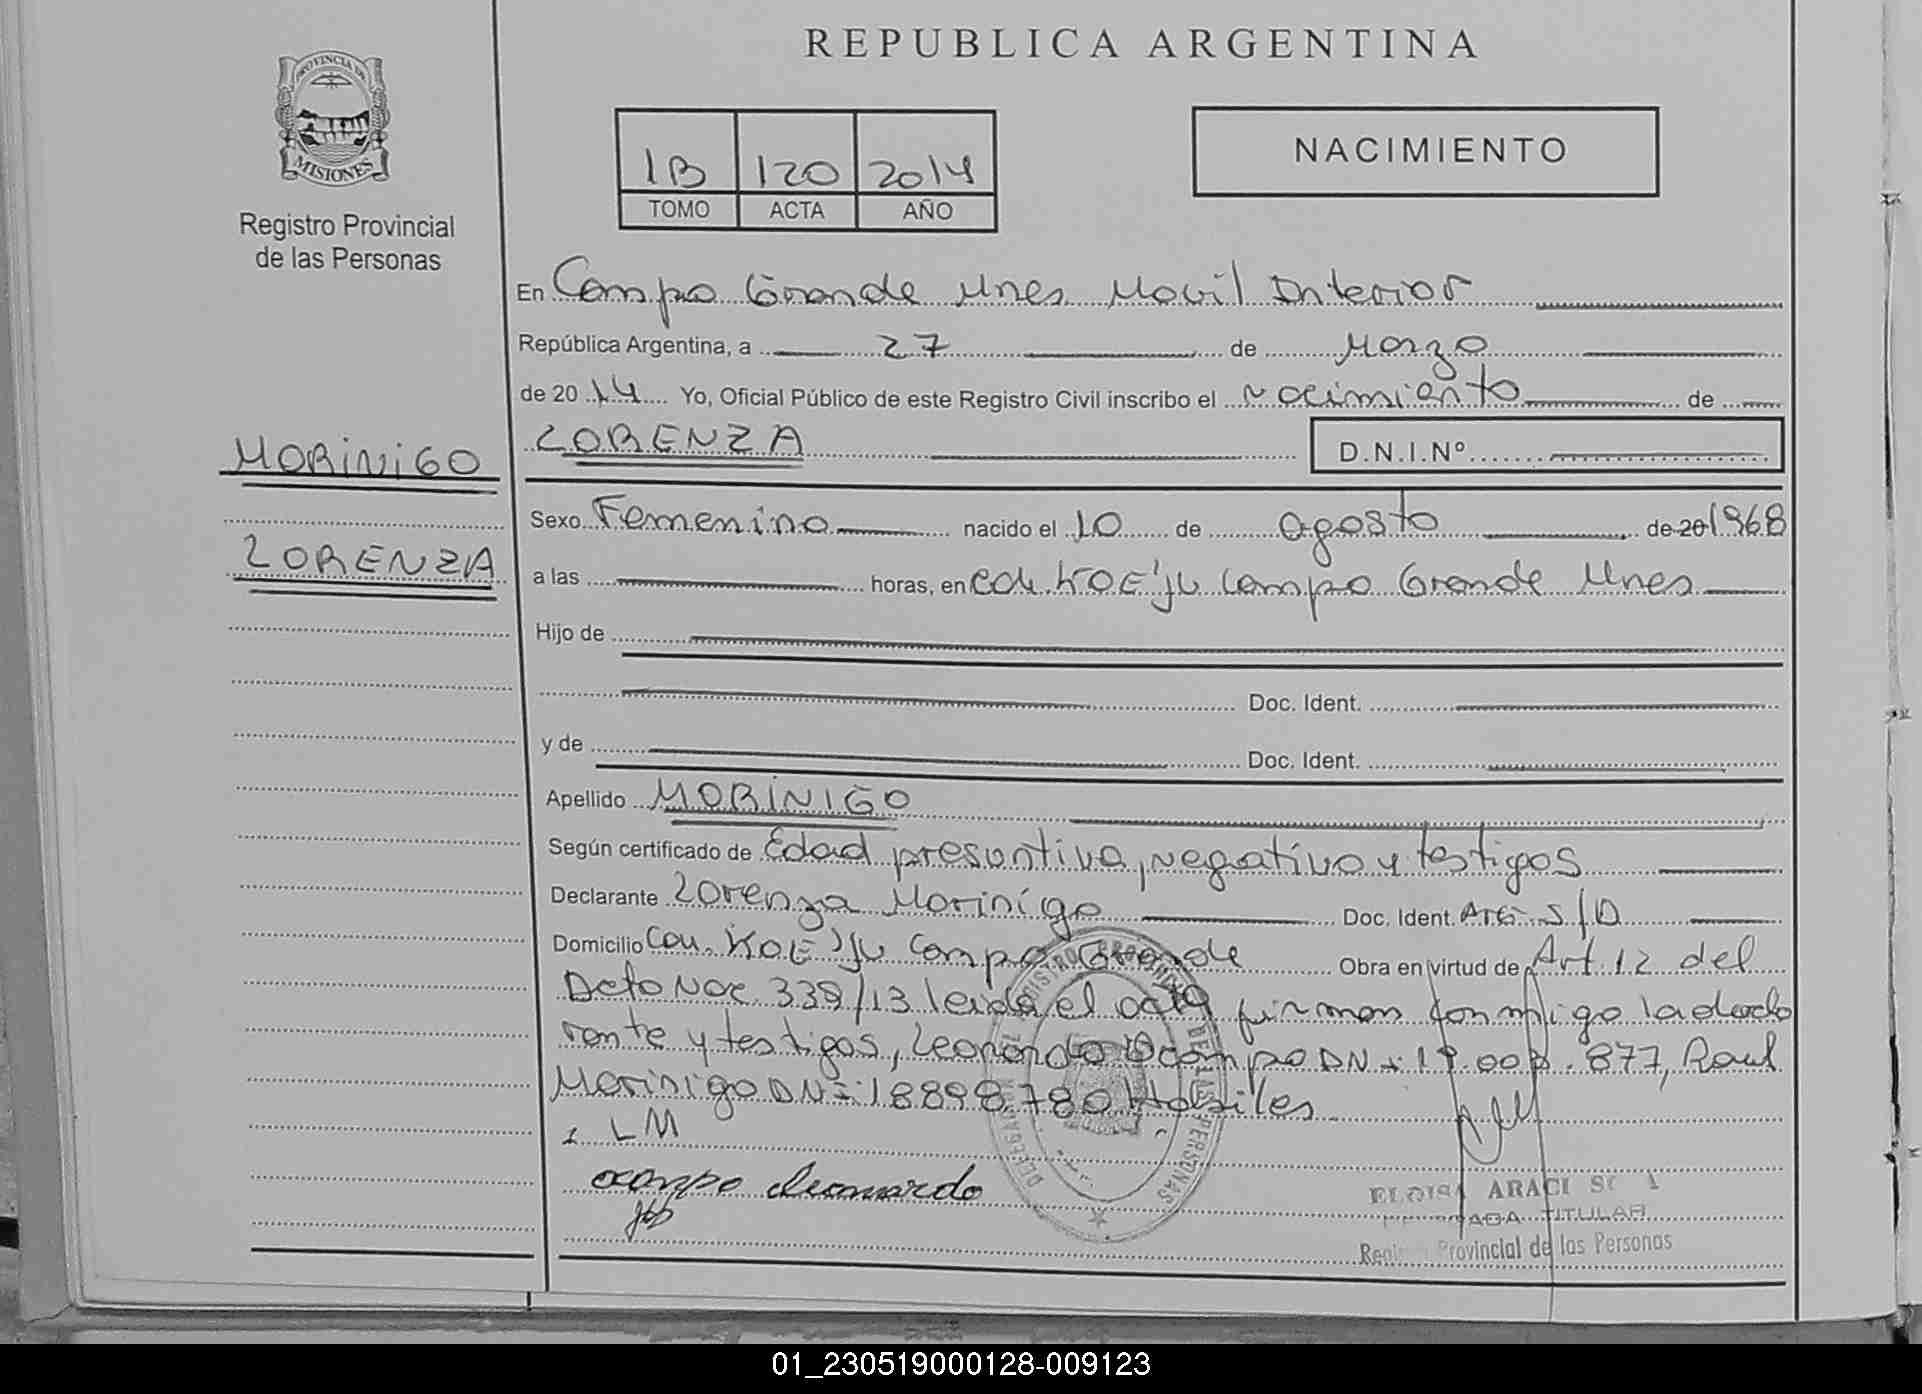 REPUBLICA ARGENTINA
PROVINCIA DE
MISIONES
Registro Provincial
de las Personas
1B 120 2014
TOMO ACTA AÑO
NACIMIENTO
En Campo Grande Mnes Movil Interior
República Argentina, a 27 de Marzo
de 2014 Yo, Oficial Público de este Registro Civil inscribo el nacimiento de
MORINIGO
LORENZA
D.N.I.Nº
Sexo Femenino nacido el 10 de agosto de 20 1968
LORENZA
a las horas, en Cdad. KOE'JU Campo Grande Mnes
Hijo de
Doc. Ident.
y de Doc. Ident.
Apellido MORINIGO
Según certificado de Edad presuntiva, negativo y testigos
Declarante Lorenza Morinigo Doc. Ident. ARG. S/D
Domicilio KOE'JU Campo Grande Obra en virtud de Art. 12 del
Dcto Nac 339/13 leida el acta firman conmigo la decla
rante y testigos, Leonardo Ocampo DNI 19.003.877, Raul
Morinigo DNI 18898.780 Habiles
LM
ocampo leonardo
ELOISA ARACI
TITULAR
Registro Provincial de las Personas
01_230519000128-009123